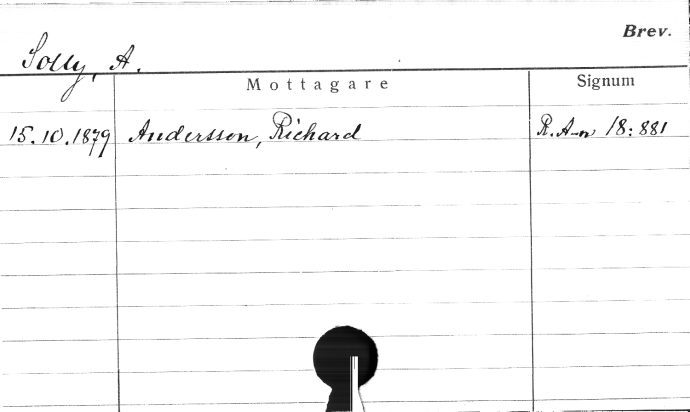 Brev.
Solly, A.
Mottagare Signum
15.10.1879 Andersson, Richard R. A-n 18:881